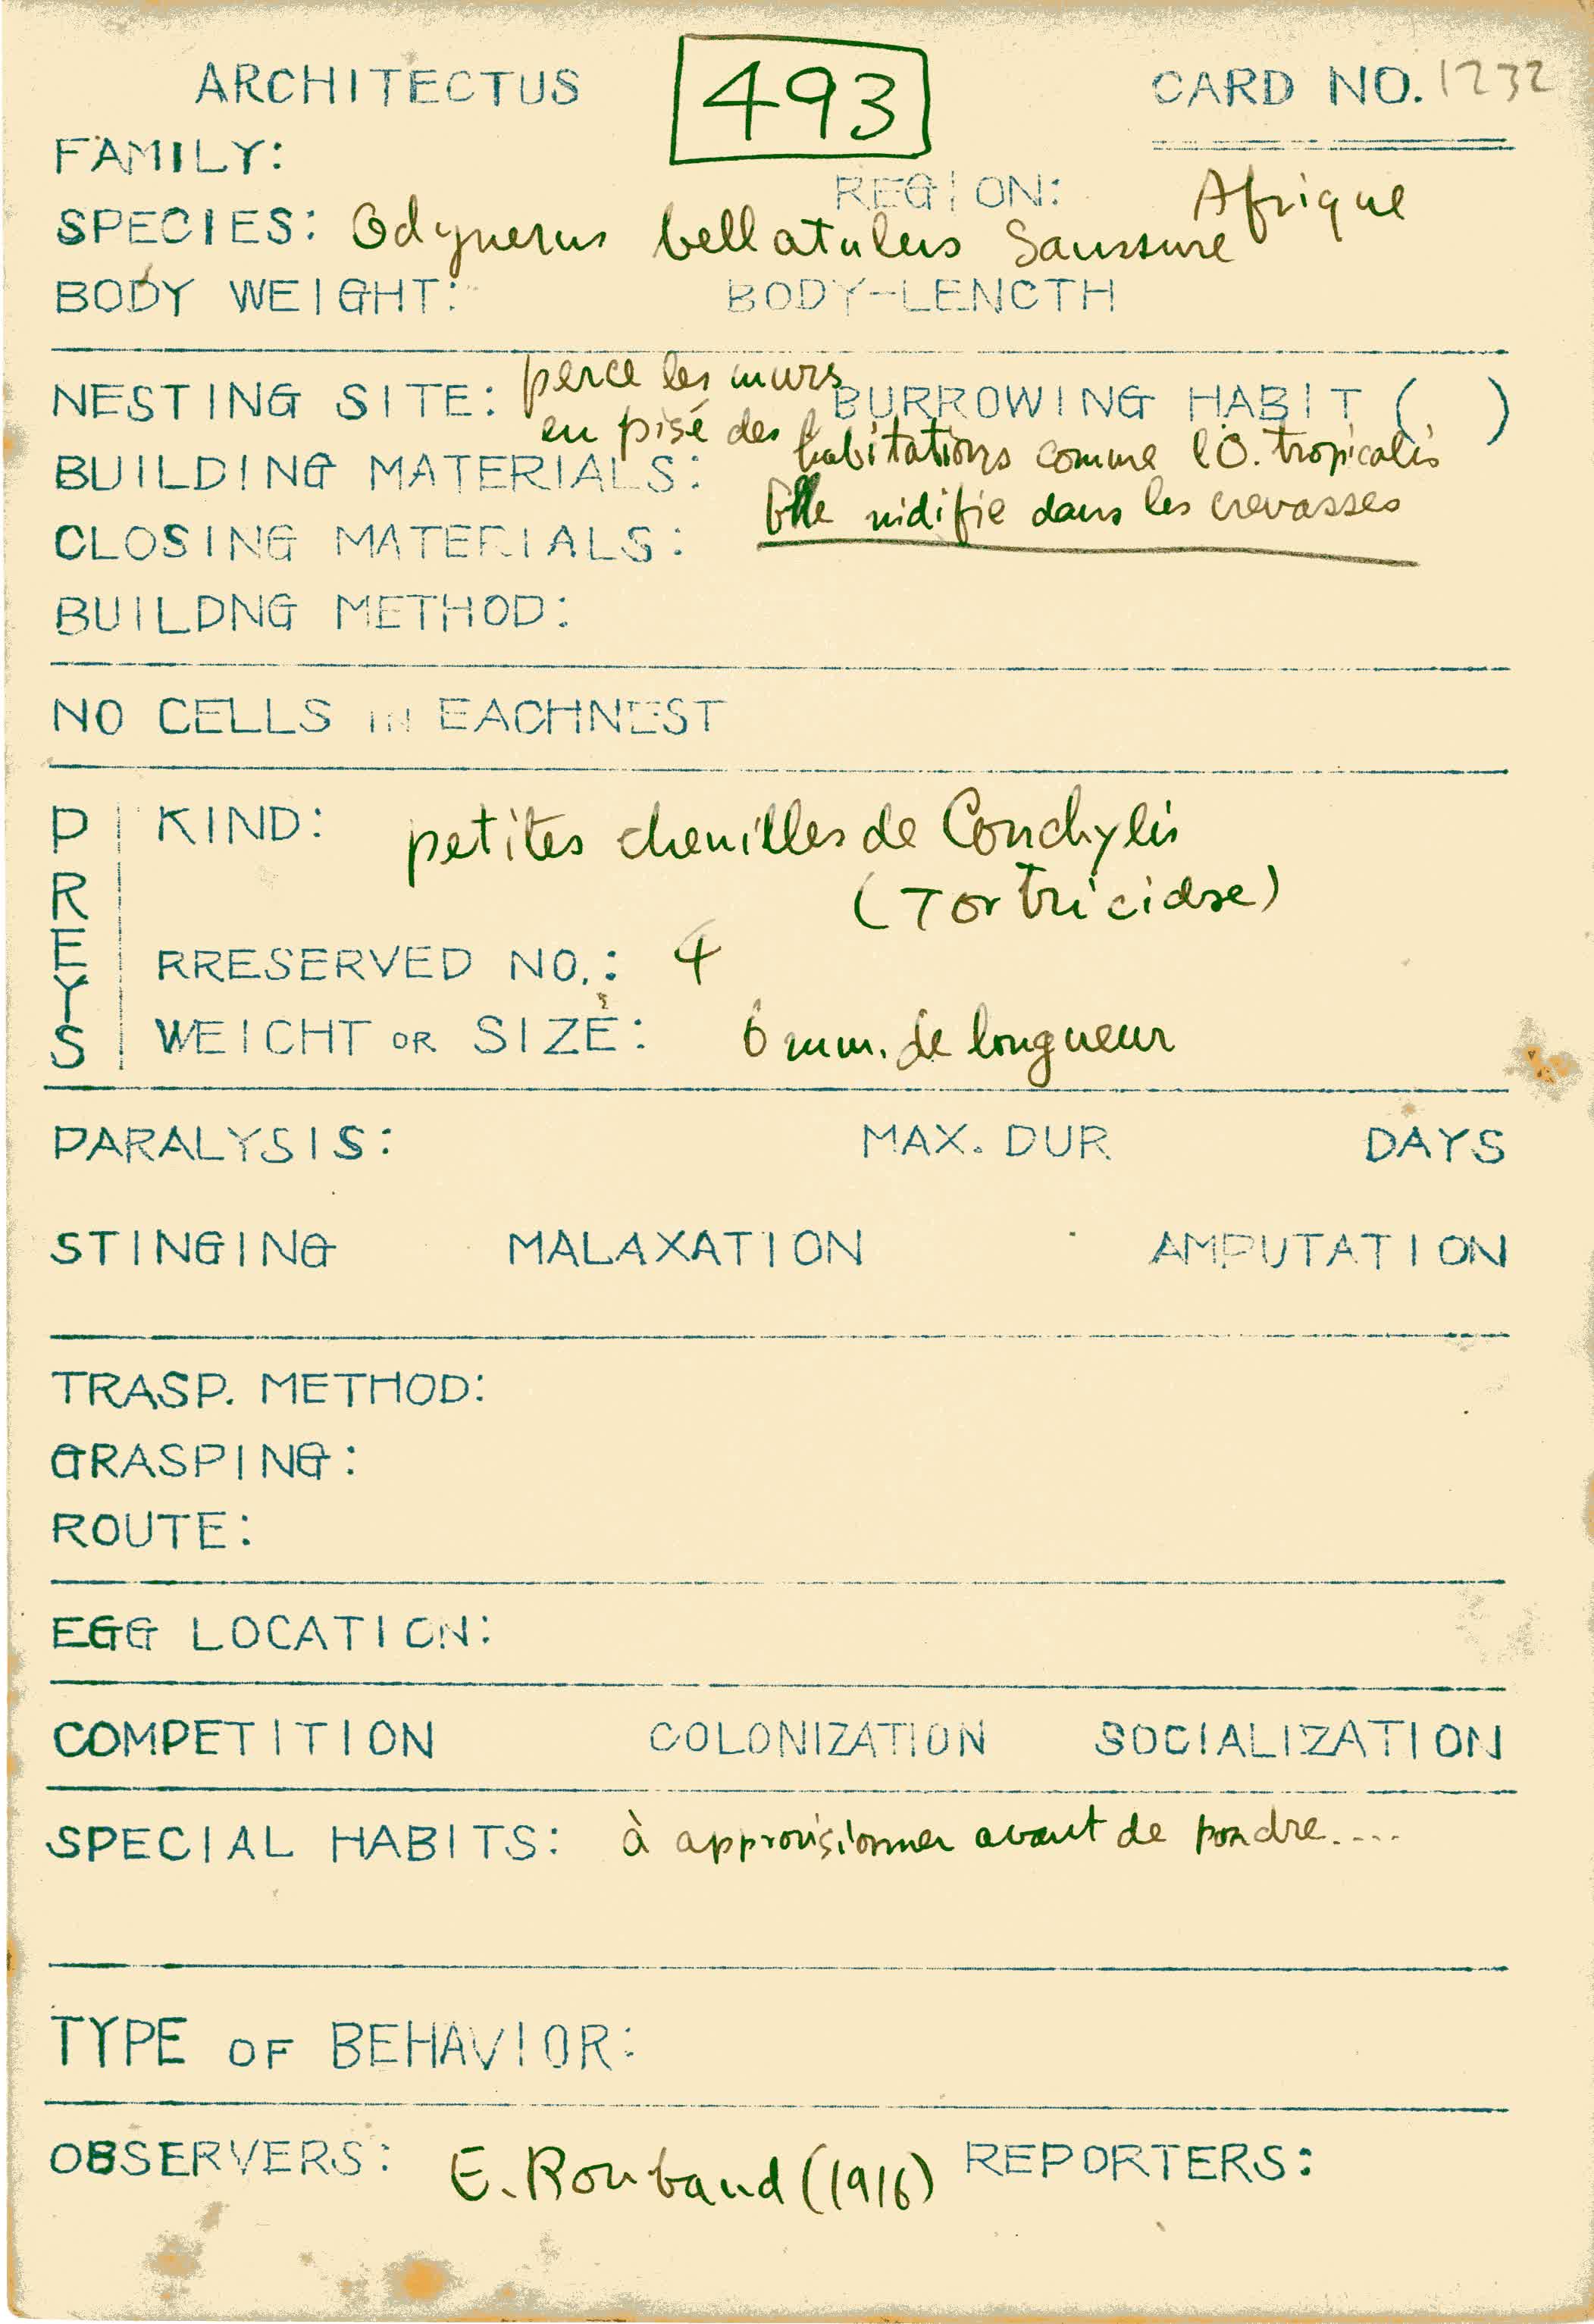 ARCHITECTUS 493 CARD NO. 1232
FAMILY:
REGION: Afrique
SPECIES: Odynerus bellatulus Saussure
BODY WEIGHT: BODY-LENCTH
NESTING SITE: perce les murs BURROWING HABIT ( )
en pisé des habitations comme l'O. tropicalis
BUILDING MATERIALS:
Elle nidifie dans les crevasses
CLOSING MATERIALS:
BUILDNG METHOD:
NO CELLS IN EACHNEST
PREYS
KIND: petites chenilles de Conchylis
(Tortricidae)
RRESERVED NO.: 4
WEICHT OR SIZE: 6 mm. de longueur
PARALYSIS: MAX. DUR DAYS
STINGING MALAXATION AMPUTATION
TRASP. METHOD:
GRASPING:
ROUTE:
EGG LOCATION:
COMPETITION COLONIZATION SOCIALIZATION
SPECIAL HABITS: à approvisionner avant de pondre....
TYPE OF BEHAVIOR:
OBSERVERS: E. Roubaud (1916) REPORTERS: